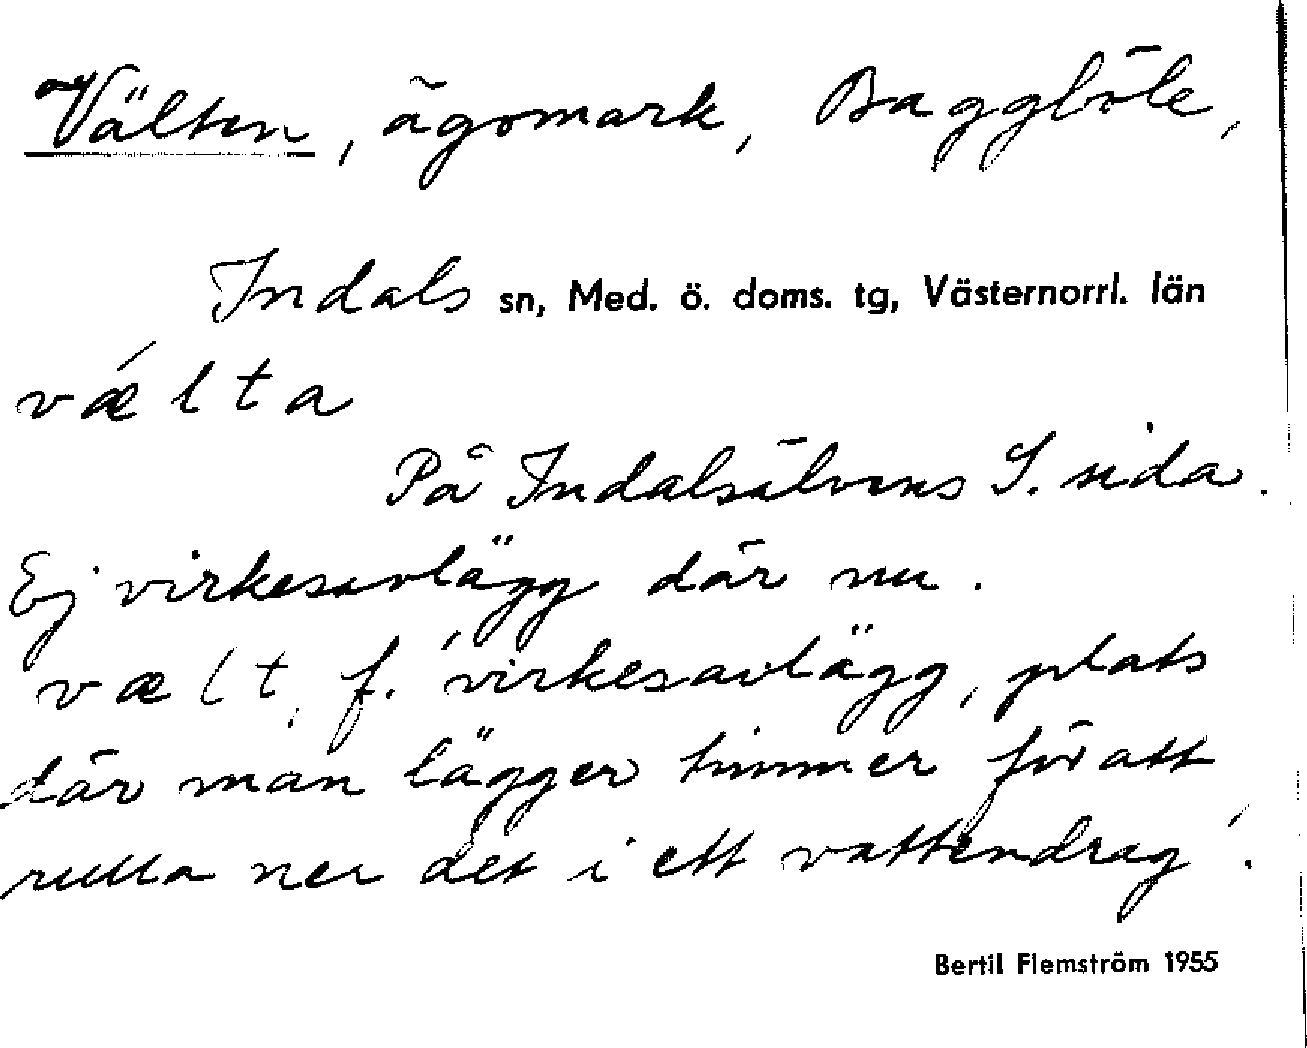 Välten, ägomark, Baggböle,
Indals sn, Med. ö. doms. tg, Västernorrl. län
væ´lta
På Indalsälvens S. sida.
Ej virkesavlägg där nu.
vælt, f. 'virkesavlägg, plats
där man lägger timmer för att
rulla ner det i ett vattendrag'.
Bertil Flemström 1955